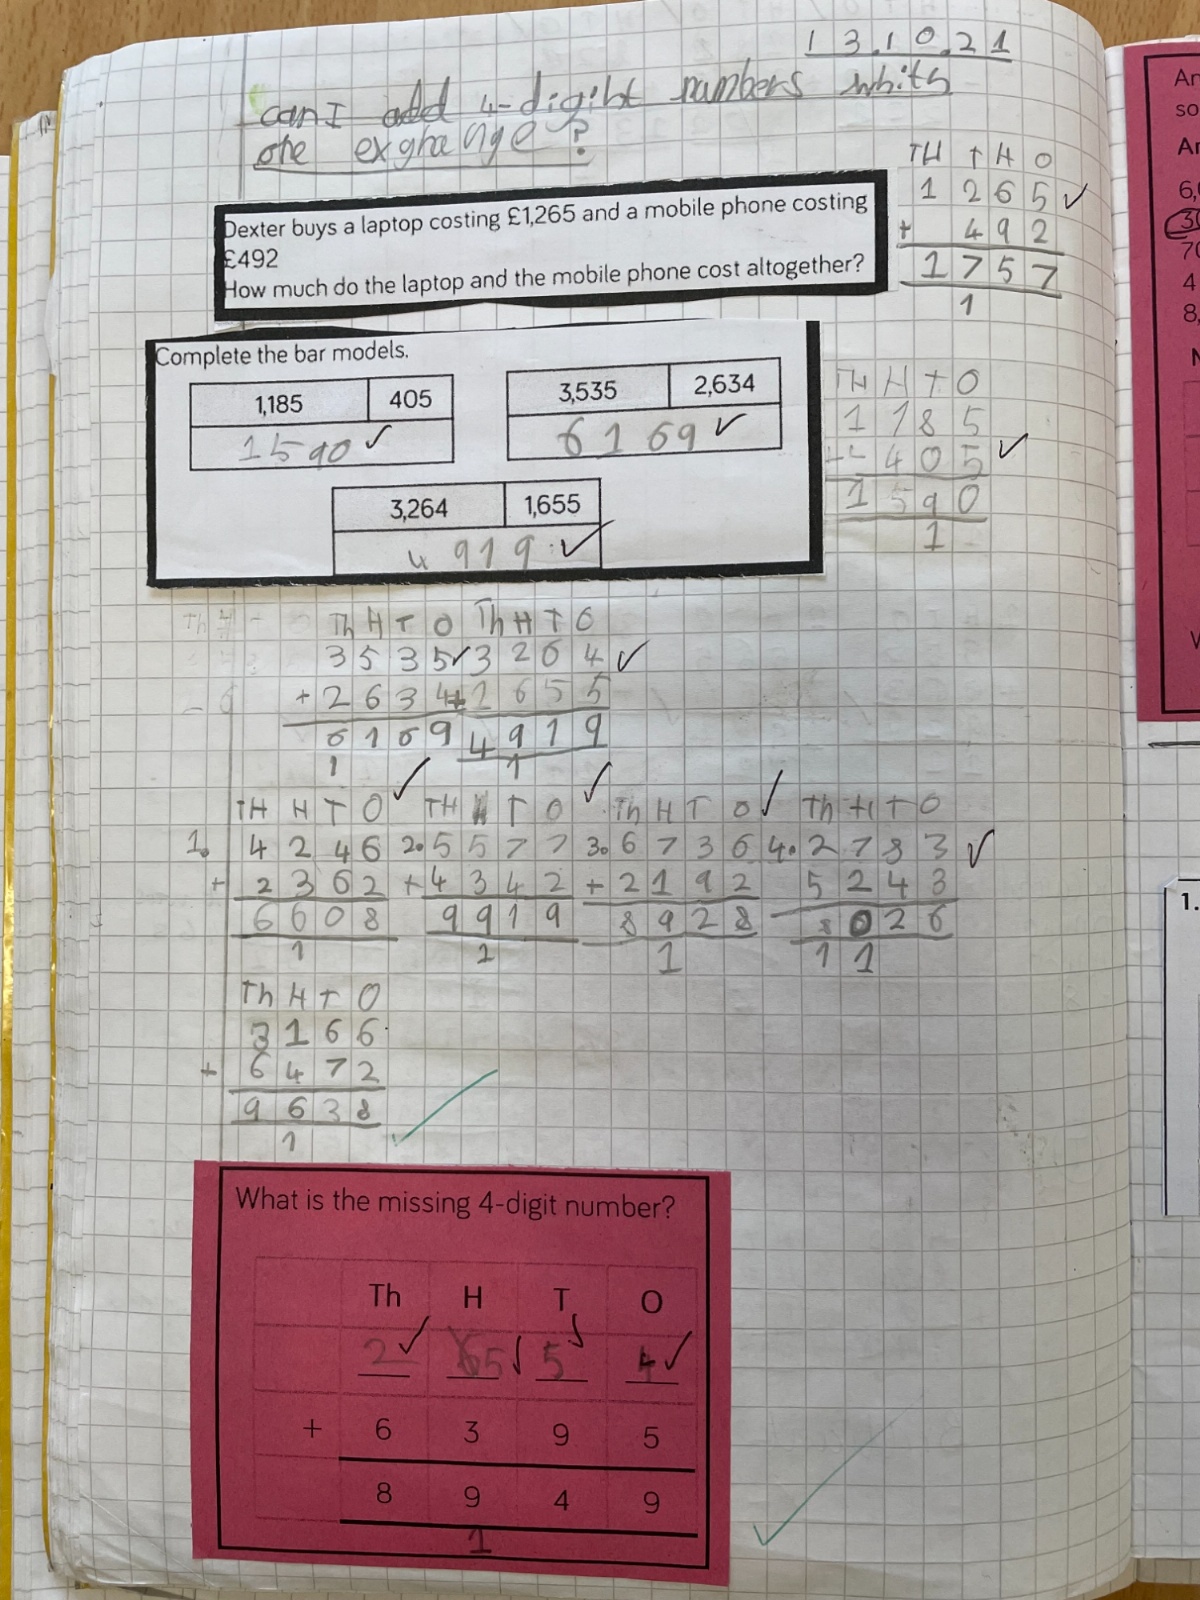 13.10.21
can I add 4-digiht numbers whith
one exghange?
TH T H O
1 2 6 5 ✓
+ 4 9 2
1 7 5 7
1
Dexter buys a laptop costing £1,265 and a mobile phone costing
£492
How much do the laptop and the mobile phone cost altogether?
Complete the bar models.
1,185 405
1590 ✓
3,535 2,634
6169 ✓
3,264 1,655
4919 ✓
TH H T O
1 1 8 5
+ 4 0 5 ✓
1 5 9 0
1
Th H T O Th H T O
3 5 3 5 ✓ 3 2 6 4 ✓
+ 2 6 3 4 + 1 6 5 5
6 1 6 9 4 9 1 9
1 1
TH H T O ✓ TH H T O ✓ Th H T O ✓ Th H T O
1. 4 2 4 6 2. 5 5 7 7 3. 6 7 3 6 4. 2 7 8 3 ✓
+ 2 3 6 2 + 4 3 4 2 + 2 1 9 2 5 2 4 3
6 6 0 8 9 9 1 9 8 9 2 8 8 0 2 6
1 1 1 1 1
Th H T O
3 1 6 6
+ 6 4 7 2
9 6 3 8
1
What is the missing 4-digit number?
Th H T O
2 ✓ 5 ✓ 5 ✓ 4 ✓
+ 6 3 9 5
8 9 4 9
1
An
so
An
4
8,
1.